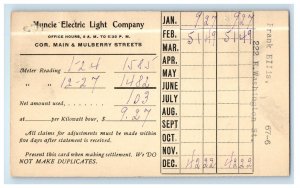 Muncie Electric Light Company
OFFICE HOURS, 8 A. M. TO 5:30 P. M.
COR. MAIN & MULBERRY STREETS
Meter Reading 1-24 1585
" " 12-27 1482
Net amount used, 103
at per Kilowatt hour, $ 9.27
All claims for adjustments must be made within
five days after statement is received.
Present this card when making settlement. We DO
NOT MAKE DUPLICATES.
JAN. 927 927
FEB. 5149 5149
MARCH
APRIL
MAY
JUNE
JULY
AUG.
SEPT
OCT.
NOV.
DEC. 1222 1222
Frank Ellis,
222 E. Washington St.
67-6